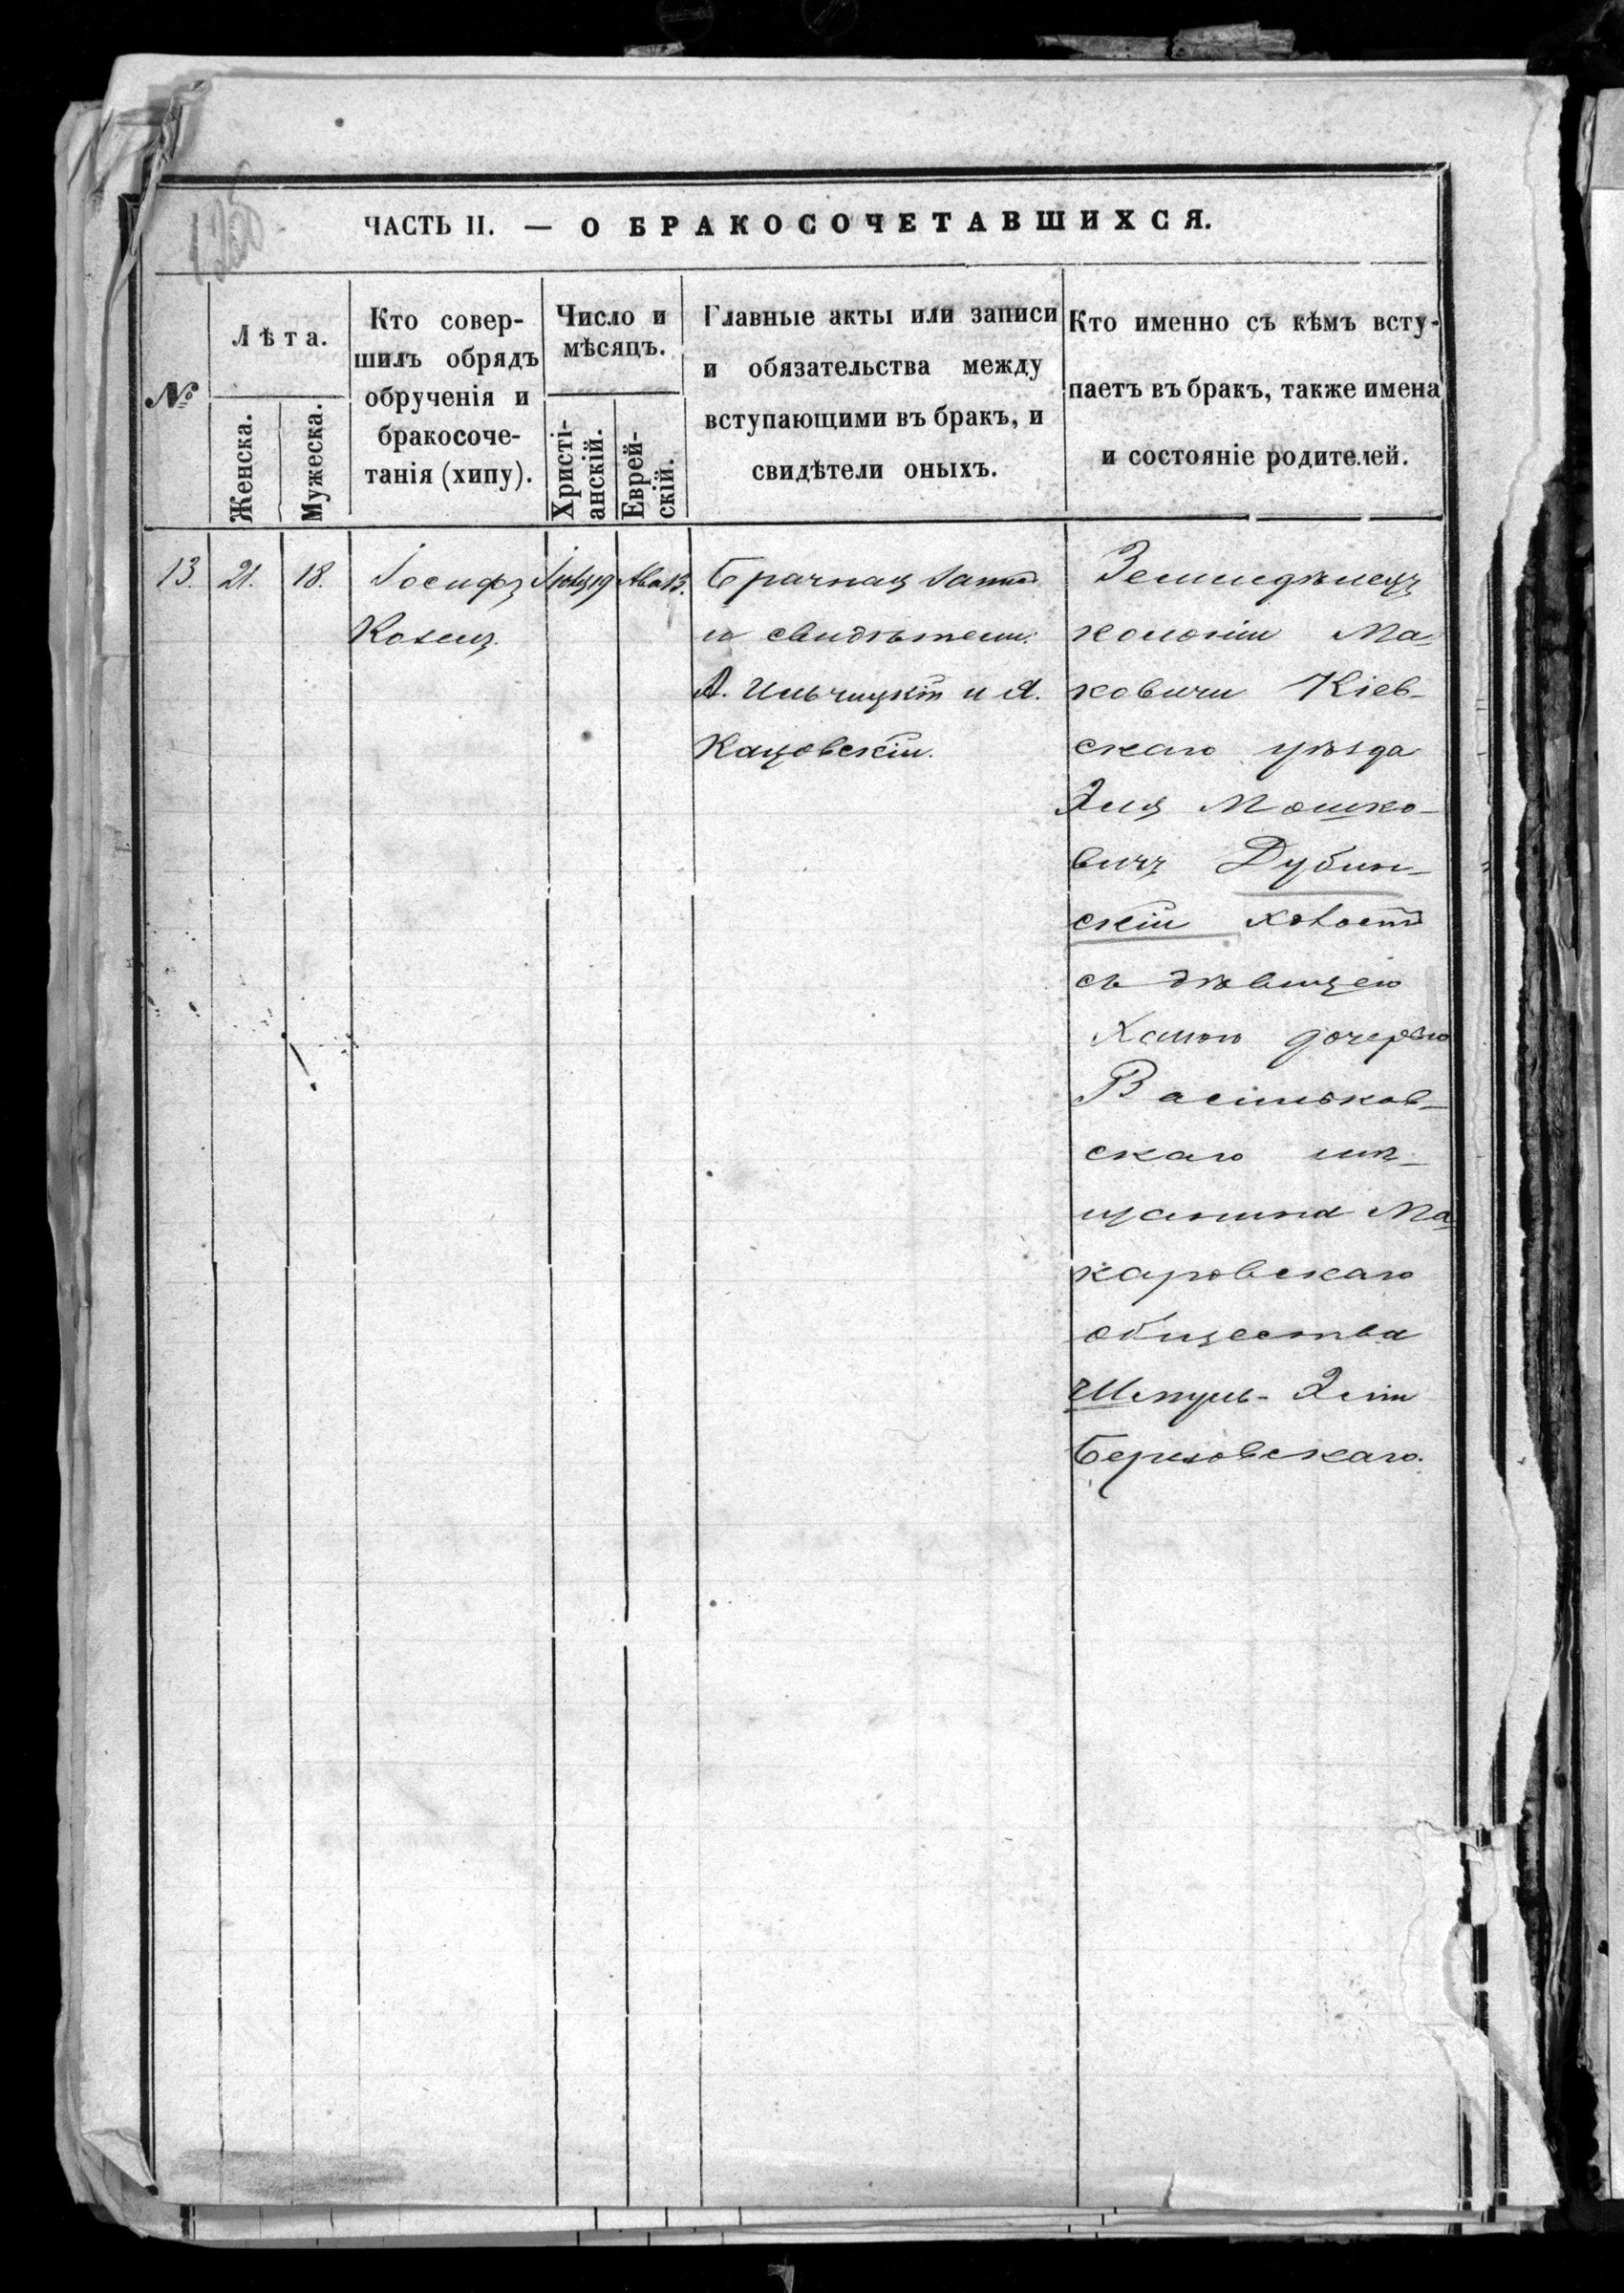 ЧАСТЬ II. — О БРАКОСОЧЕТАВШИХСЯ.
№
Лѣта.
Женска.
Мужеска.
Кто совер-
шилъ обрядъ
обрученія и
бракосоче-
танія (хипу).
Число и
мѣсяцъ.
Христі-
анскій.
Еврей-
скій.
Главные акты или записи
и обязательства между
вступающими въ бракъ, и
свидѣтели оныхъ.
Кто именно съ кѣмъ всту-
паетъ въ бракъ, также имена
и состояніе родителей.
13. 21. 18.
Іосифъ
Козец.
19
Ава 13.
Брачная запись
и свидѣтели:
А. Ильчицкій и Я.
Кацовскій.
Земледѣлецъ
колоніи Ма-
ковичи Кіев-
скаго уѣзда
Эля Мошко-
вичъ Дубин-
скій холост
съ дѣвицею
Ханою дочерью
Васильков-
скаго мѣ-
щанина Ма-
каровскаго
общества
Шмуль-Зели
Берловскаго.